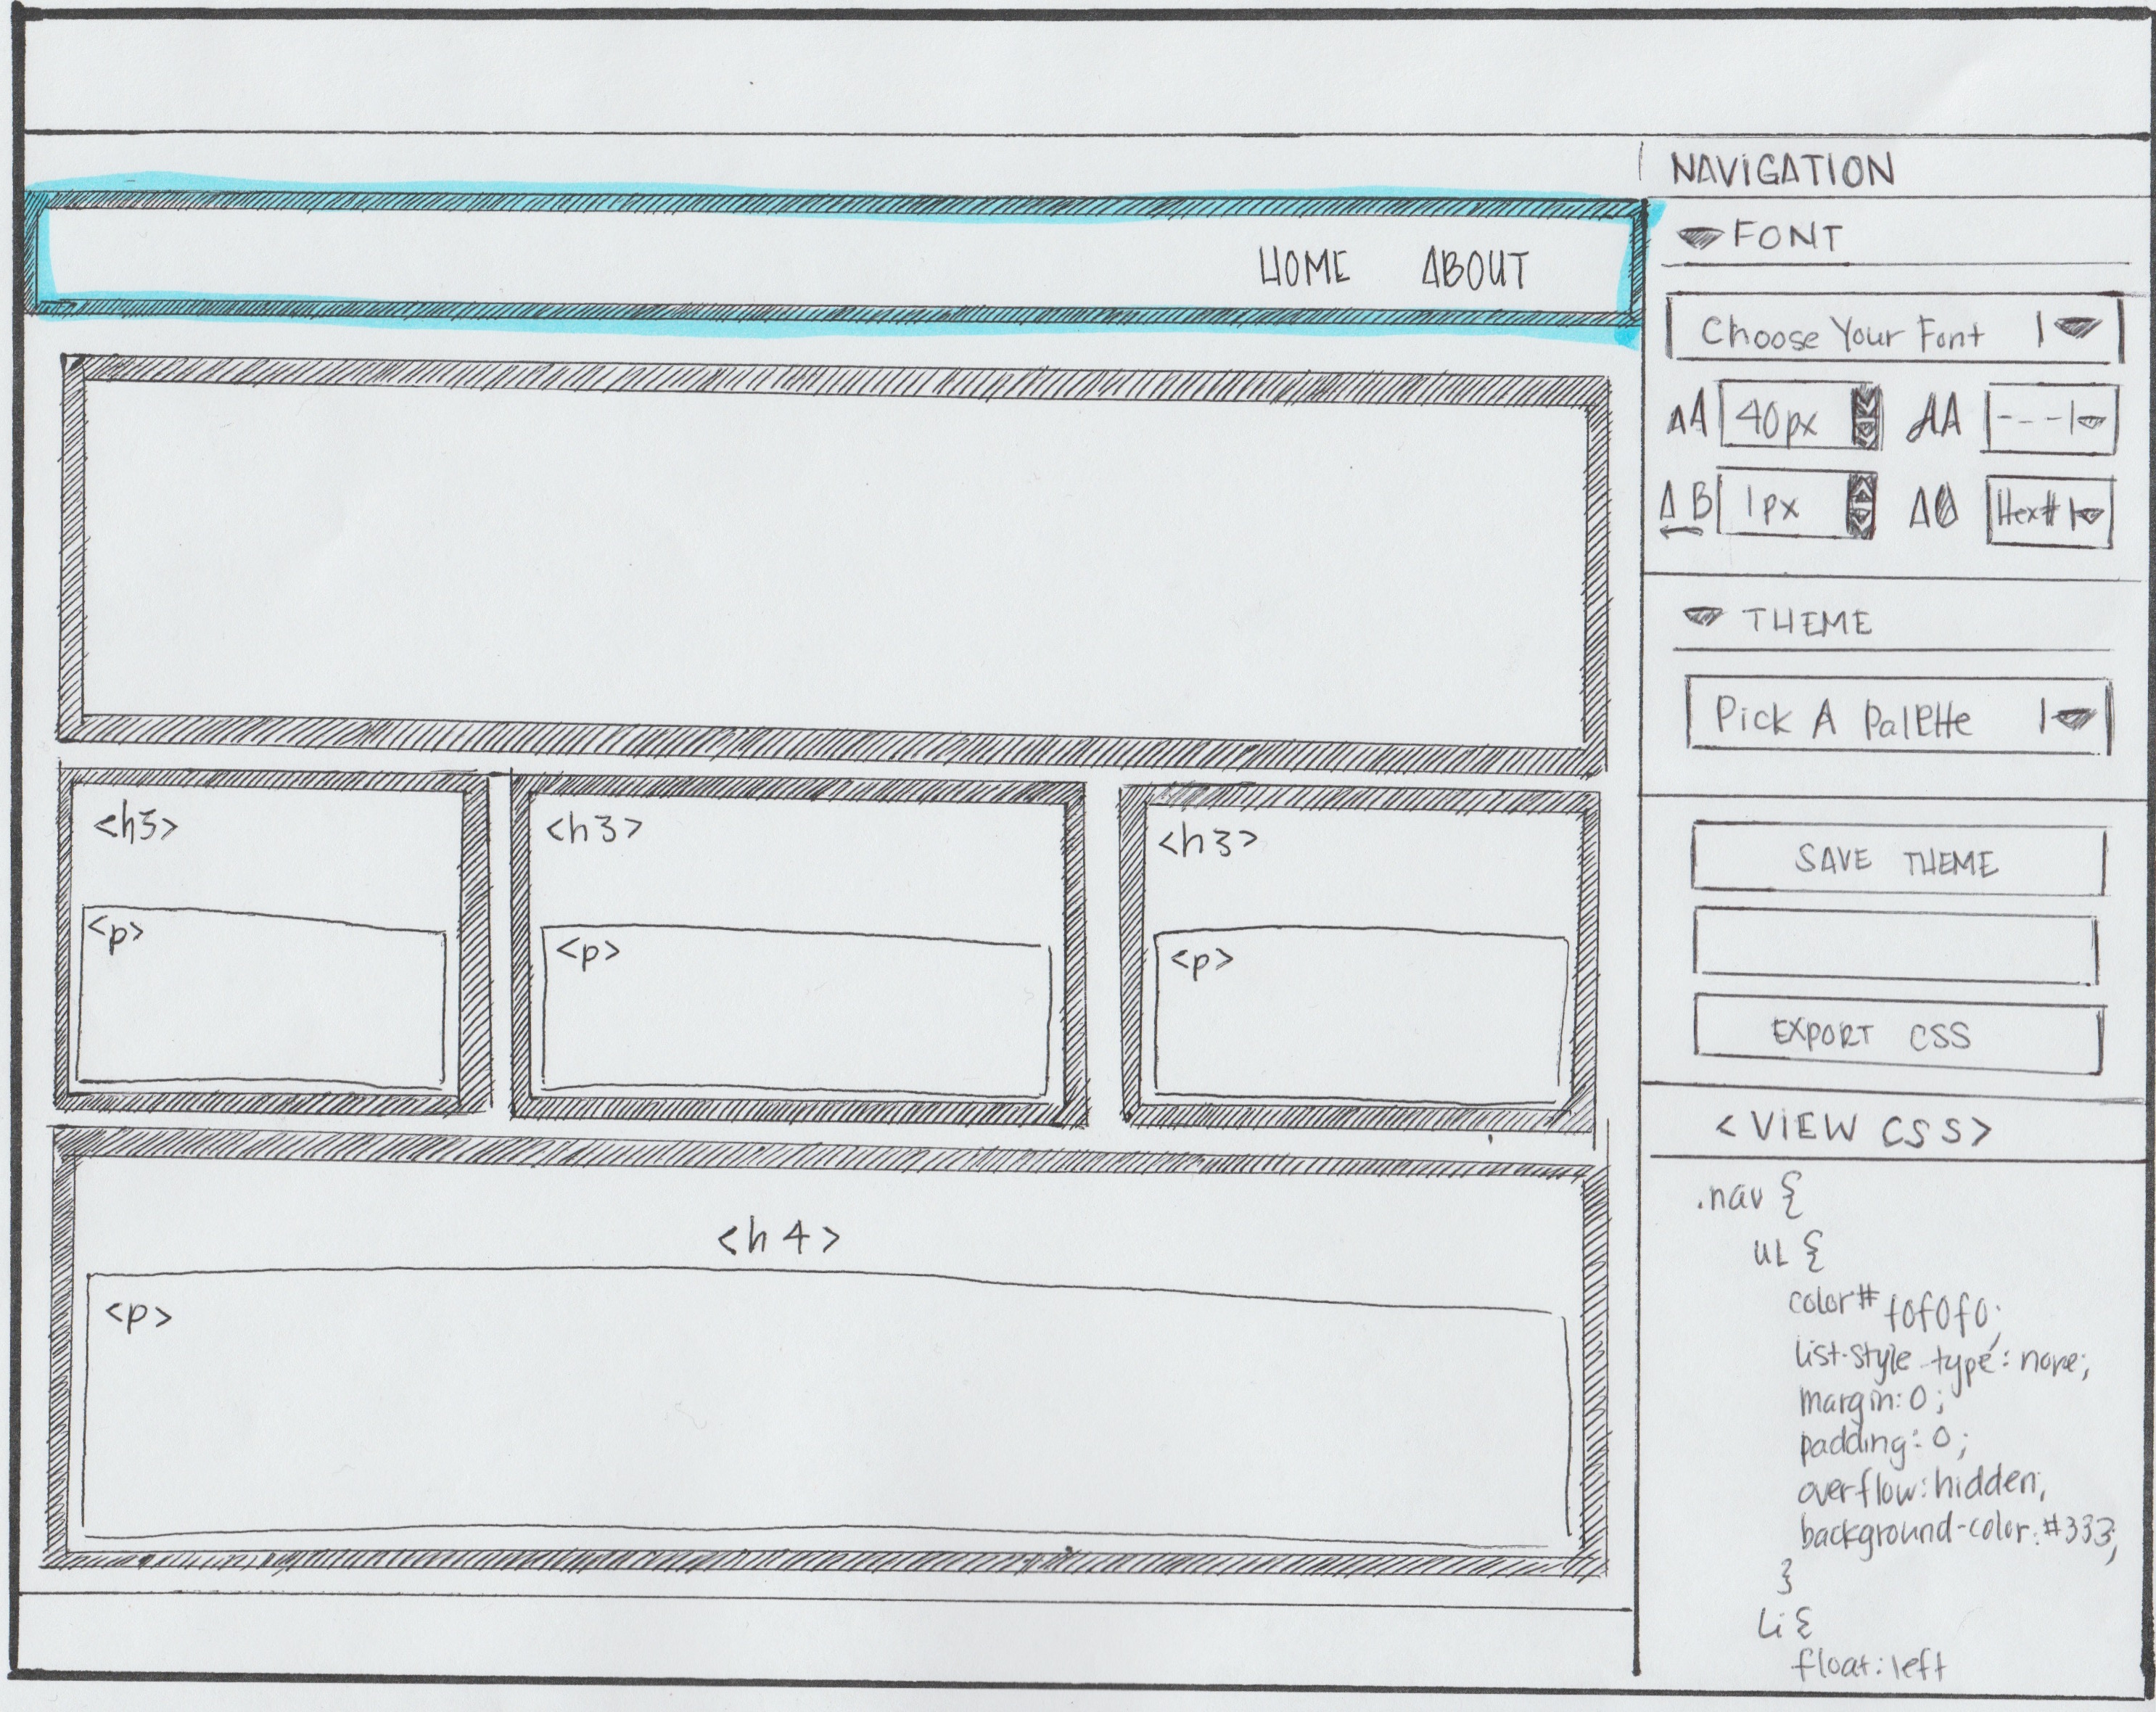 HOME ABOUT
<h3>
<p>
<h3>
<p>
<h3>
<p>
<h4>
<p>
NAVIGATION
FONT
Choose Your Font
AA 40px AA ---
AB 1px A Hex#
THEME
Pick A Palette
SAVE THEME
EXPORT CSS
<VIEW CSS>
.nav {
UL {
color# f0f0f0;
list-style type: none;
margin: 0;
padding: 0;
overflow: hidden;
background-color: #333;
}
Li {
float: left